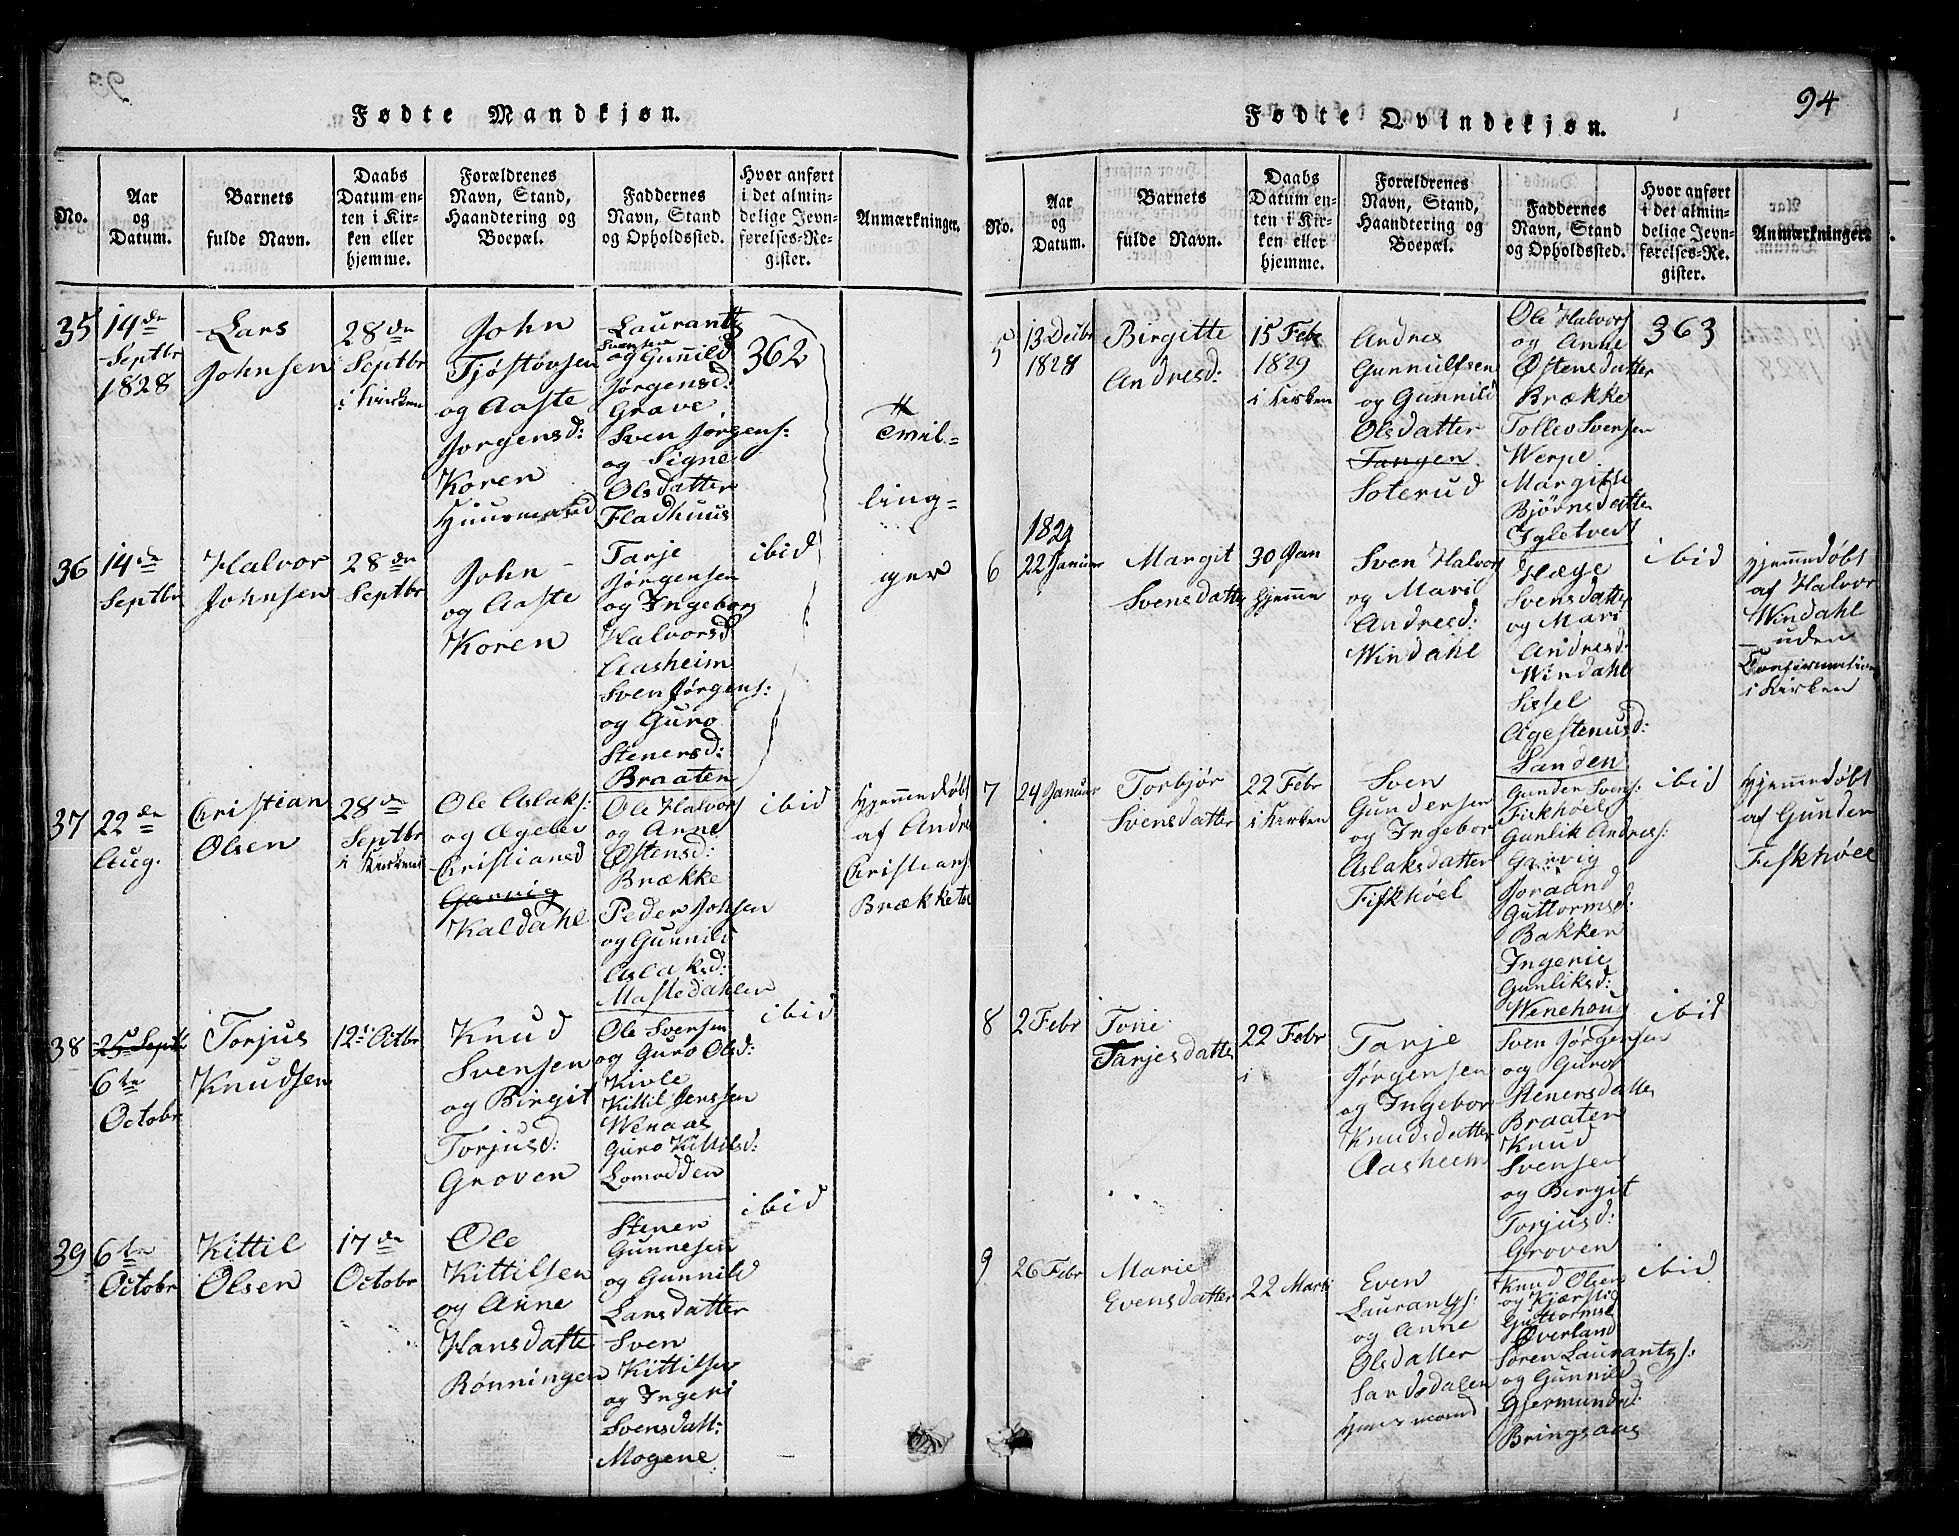 Fødte Mandkjøn.
No.
Aar
og
Datum.
Barnets
fulde Navn.
Daabs
Datum en-
ten i Kir-
ken eller
hjemme.
Forældrenes
Navn, Stand,
Haandtering og
Boepæl.
Faddernes
Navn, Stand
og Opholdssted.
Hvor anført
i det almin-
delige Jevn-
førelses-Re-
gister.
Anmærkninger.
35
14de
Septbr
1828
Lars
Johnsen
28de
Septbr
i Kirken
John
Tjøstovsen
og Aaste
Jorgensd:
Koren
Huusmand
Laurants
Svensen
og Gunnild
Jørgensd:
Grave.
Sven Jørgens:
og Signe
Olsdatter
Fladhuus
362
Tvil=
ling=
ger
36
14de
Septbr
Halvor
Johnsen
28de
Septbr
John
og Aaste
Koren
Tarje
Jørgensen
og Ingeborg
Halvorsd
Aasheim
Sven Jørgens:
og Guro
Stenersd:
Braaten
ibid
37
22de
Aug.
Christian
Olsen
28de
Septbr
i Kirken
Ole Aslaks:
og Aagele
Christiansd
Garvig
Kaldahl
Ole Halvors
og Anne
Østensd:
Brække
Peder Johsen
og Gunnild
Aslaksd:
Mastedahlen
ibid
Hjemmedøbt
af Andre
Christians
Brækketø
38
25 Septb
6te
Octobr
Torjus
Knudsen
12te Octbr
Knud
Svensen
og Birgit
Torjusd:
Groven
Ole Svensen
og Guro Olsd:
Kivle
Kittil Jenssen
Wenaas
Guro Kittilsd:
Lomodden
ibid
39
6te
Octobr
Kittil
Olsen
17de
Octobr
Ole
Kittilsen
og Anne
Hansdatte
Rønningen
Stener
Gunnesen
og Gunnild
Larsdatter
Sven
Kittilsen
og Ingeri
Svensdatt:
Mogene
ibid
94
Fødte Qvindekjøn.
No.
Aar
og
Datum.
Barnets
fulde Navn.
Daabs
Datum en-
ten i Kir-
ken eller
hjemme.
Forældrenes
Navn, Stand,
Haandtering og
Boepæl.
Faddernes
Navn, Stand
og Opholdssted.
Hvor anført
i det almin-
delige Jevn-
førelses-Re-
gister.
Anmærkninger.
5
13 Decbr
1828
Birgitte
Andresd:
15 Feb
1829
i Kirken
Andres
Gunnulfsen
og Gunnild
Olsdatter
Tangen
Soterud
Ole Halvors
og Anne
Østensdatter
Brække
Tollev Svensen
Werpe
Margitte
Bjørnsdatter
Igletvedt
363
1829
6
22 Januar
Margit
Svensdatter
30 Jan
hjemme
Sven Halvors
og Mari
Andresd:
Windahl
Hæge
Svensdatter
og Mari
Andresd:
Windahl
Sissel
Agestenusd:
Sanden
ibid
hjemmedøbt
af Halvor
Windahl
uden
Confirmation
i Kirken
7
24 Januar
Torbjør
Svensdatter
22 Febr
i Kirken
Sven
Gundersen
og Ingebor
Aslaksdatter
Fiskhøel
Gunder Svens:
Fiskhøel
Gunlik Andres:
Garvig
Joraand
Guttormsd:
Bakken
Ingerie
Gunliksd:
Wenehoug
ibid
Hjemmedøbt
af Gunder
Fiskhøel
8
2 Febr
Tone
Tarjesdatter
22 Febr
i
Tarje
Jørgensen
og Ingebor
Knudsdatter
Aasheim
Sven Jørgensen
og Guro
Stenersdatter
Braaten
Knud
Svensen
og Birgit
Torjusd:
Groven
ibid
9
26 Febr
Marie
Evensdatter
22 Marts
Even
Laurantzs:
og Anne
Olsdatter
Sandsdalen
Huusmand
Knud Olsen
og Kjærstie
Guttormsd
Øverland
Soren Laurantzs:
og Gunnild
Gjermundsd:
Bringsaas
ibid